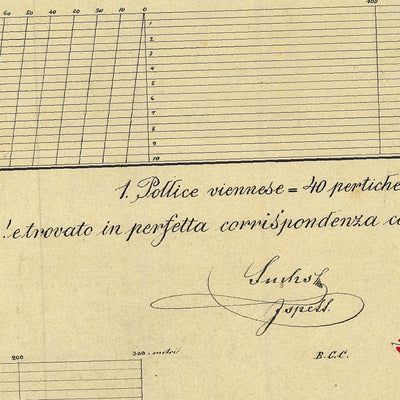 60 50 40 30 20 10 0 400
1
2
3
4
5
6
7
8
9
10
1. Pollice viennese = 40 pertiche
e trovato in perfetta corrispondenza co
Fuchs
Ispett.
200 300 metri
B.C.C.